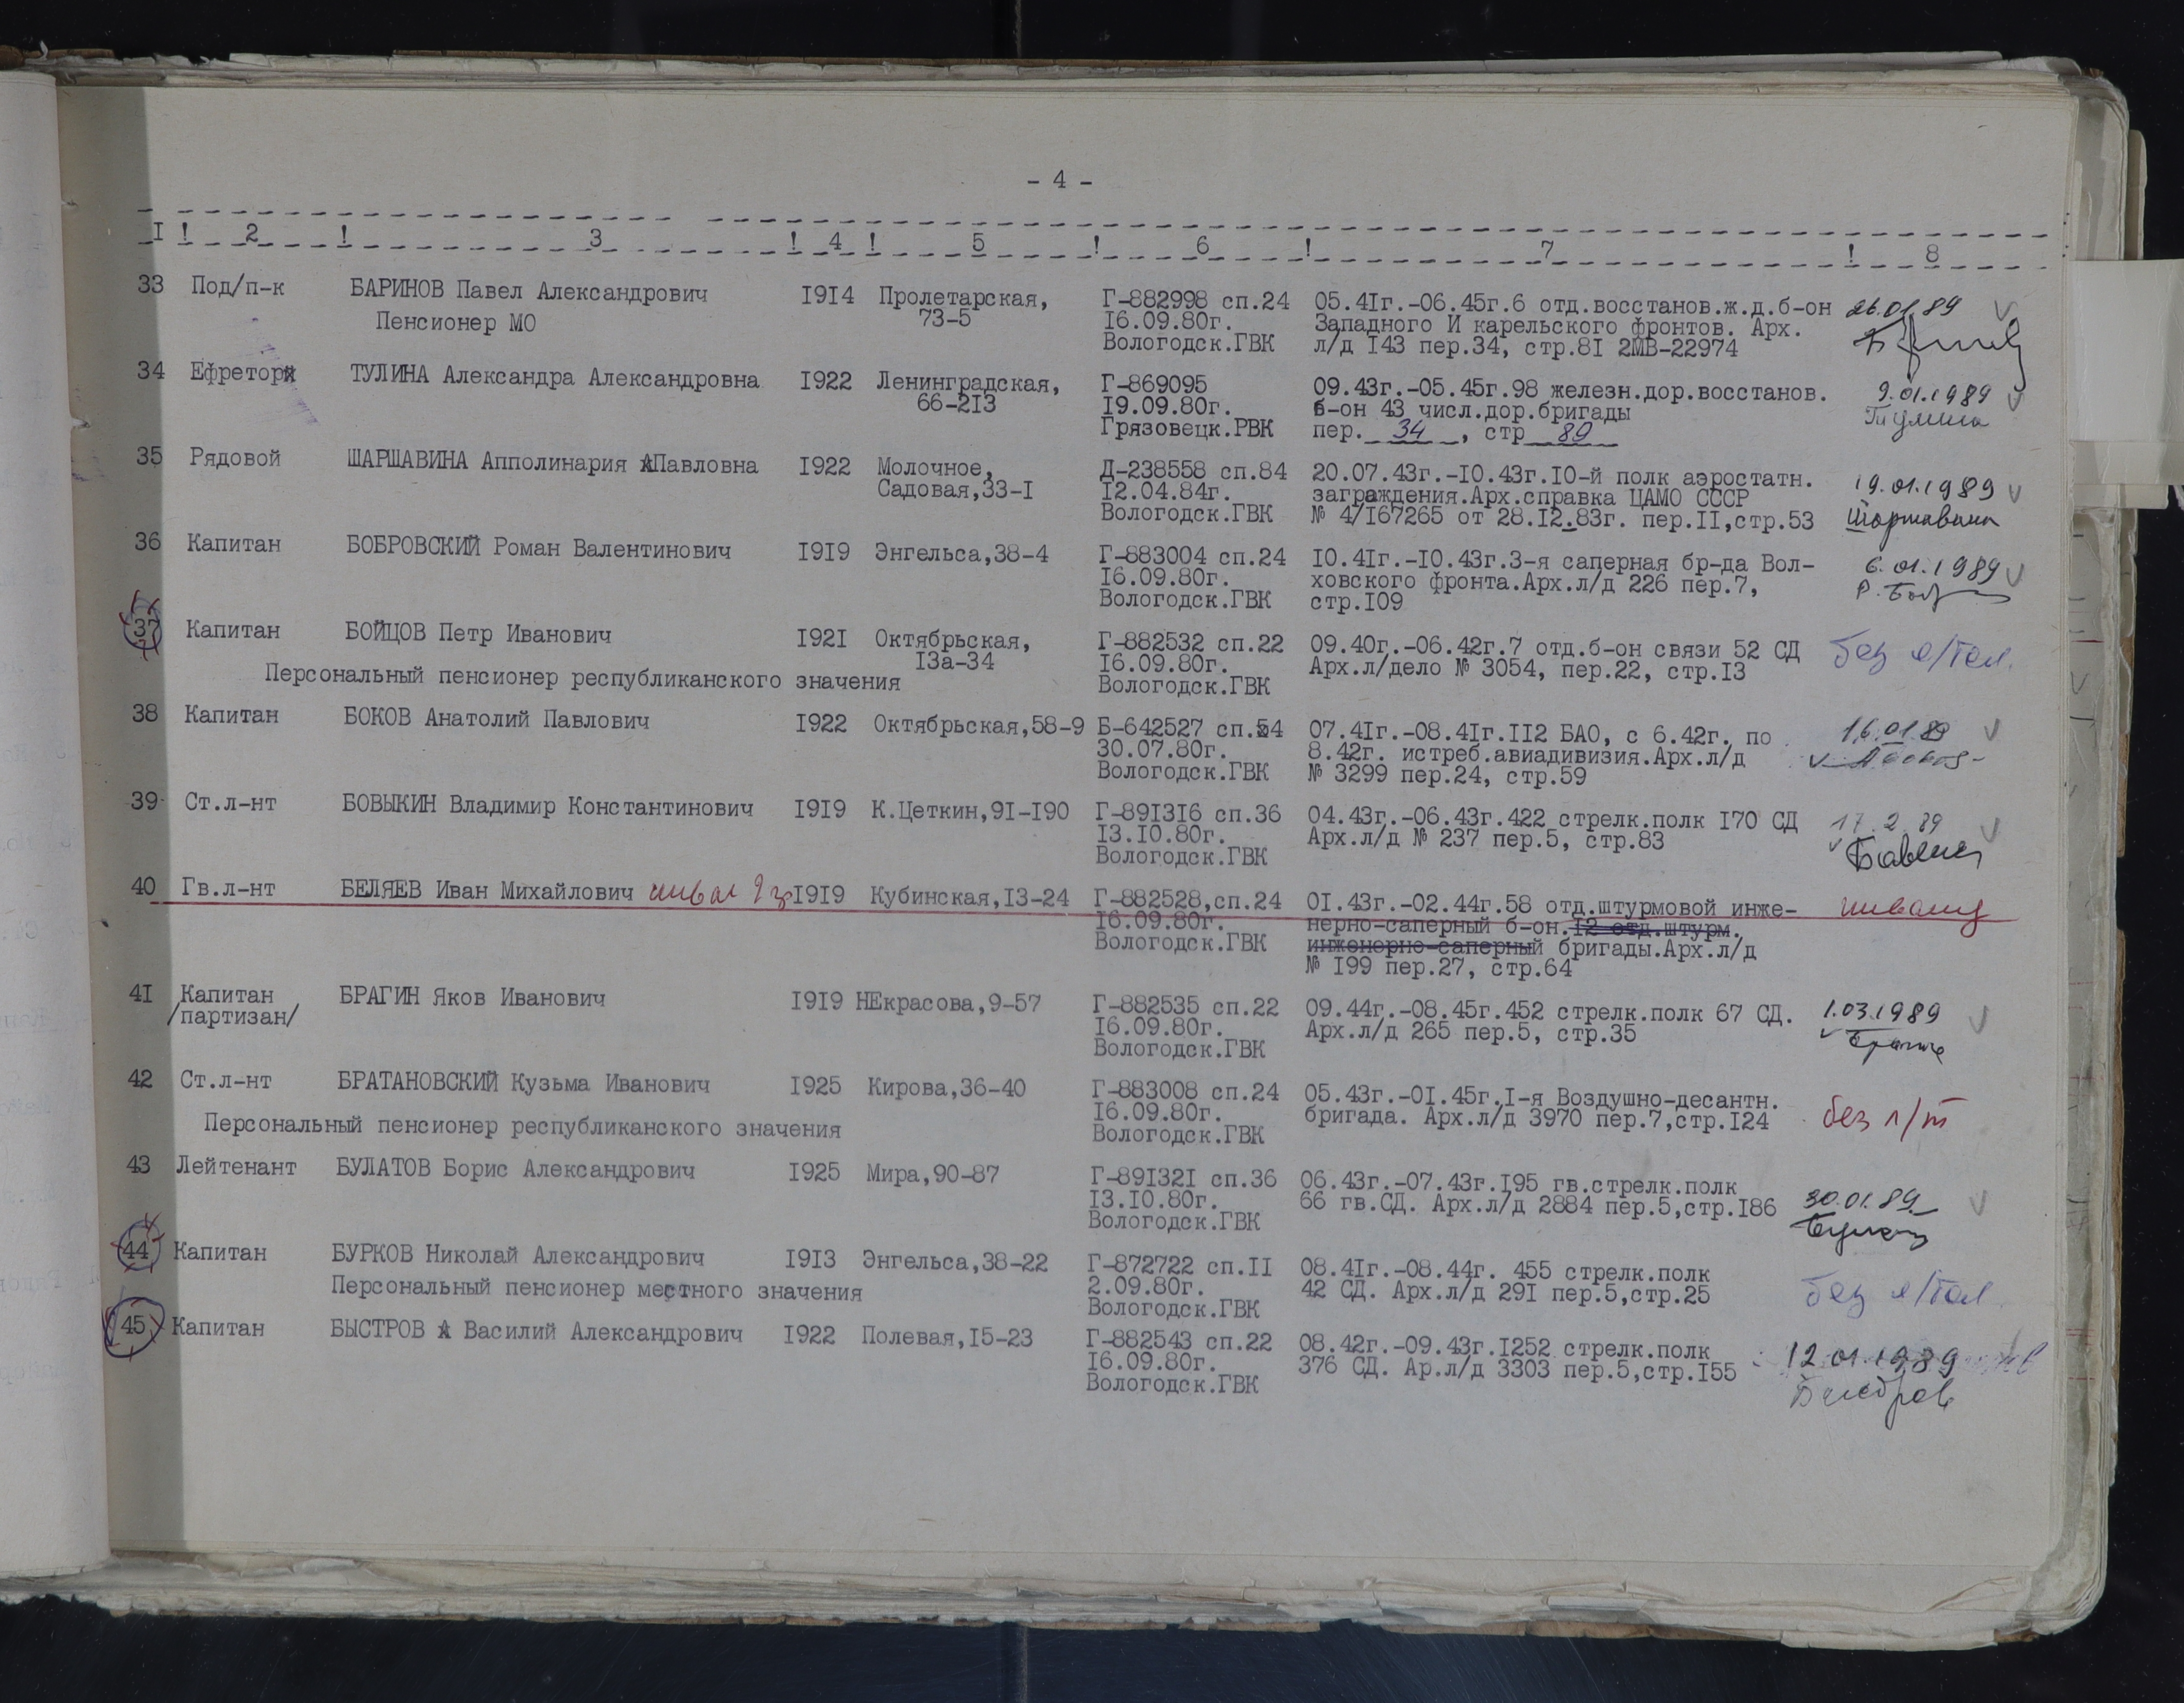 - 4 -
I ! 2 ! 3 ! 4 ! 5 ! 6 ! 7 ! 8
33 Под/п-к БАРИНОВ Павел Александрович I9I4 Пролетарская, Г-882998 сп.24 05.4Iг.-06.45г.6 отд.восстанов.ж.д.б-он 26.01.89
Пенсионер МО 73-5 I6.09.80г. Западного И карельского фронтов. Арх.
Вологодск.ГВК л/д I43 пер.34, стр.8I 2МВ-22974
34 Ефретор ТУЛИНА Александра Александровна I922 Ленинградская, Г-869095 09.43г.-05.45г.98 железн.дор.восстанов. 9.01.1989
66-2I3 I9.09.80г. б-он 43 числ.дор.бригады Тулина
Грязовецк.РВК пер. 34 , стр 89
35 Рядовой ШАРШАВИНА Апполинария Павловна I922 Молочное, Д-238558 сп.84 20.07.43г.-I0.43г.I0-й полк аэростатн. 19.01.1989
Садовая,33-I I2.04.84г. заграждения.Арх.справка ЦАМО СССР
Вологодск.ГВК № 4/I67265 от 28.I2.83г. пер.II,стр.53 Шаршавина
36 Капитан БОБРОВСКИЙ Роман Валентинович I9I9 Энгельса,38-4 Г-883004 сп.24 I0.4Iг.-I0.43г.3-я саперная бр-да Вол- 6.01.1989
I6.09.80г. ховского фронта.Арх.л/д 226 пер.7,
Вологодск.ГВК стр.I09
37 Капитан БОЙЦОВ Петр Иванович I92I Октябрьская, Г-882532 сп.22 09.40г.-06.42г.7 отд.б-он связи 52 СД без л/тал.
I3а-34 I6.09.80г. Арх.л/дело № 3054, пер.22, стр.I3
Персональный пенсионер республиканского значения Вологодск.ГВК
38 Капитан БОКОВ Анатолий Павлович I922 Октябрьская,58-9 Б-642527 сп.54 07.4Iг.-08.4Iг.II2 БАО, с 6.42г. по 16.01.89
30.07.80г. 8.42г. истреб.авиадивизия.Арх.л/д
Вологодск.ГВК № 3299 пер.24, стр.59
39 Ст.л-нт БОВЫКИН Владимир Константинович I9I9 К.Цеткин,9I-I90 Г-89I3I6 сп.36 04.43г.-06.43г.422 стрелк.полк I70 СД 17.2.89
I3.I0.80г. Арх.л/д № 237 пер.5, стр.83
Вологодск.ГВК
40 Гв.л-нт БЕЛЯЕВ Иван Михайлович I9I9 Кубинская,I3-24 Г-882528,сп.24 0I.43г.-02.44г.58 отд.штурмовой инже- инвалид
I6.09.80г. нерно-саперный б-он.I2 отд.штурм.
Вологодск.ГВК инженерно-саперный бригады.Арх.л/д
№ I99 пер.27, стр.64
4I Капитан БРАГИН Яков Иванович I9I9 НЕкрасова,9-57 Г-882535 сп.22 09.44г.-08.45г.452 стрелк.полк 67 СД. 1.03.1989
/партизан/ I6.09.80г. Арх.л/д 265 пер.5, стр.35
Вологодск.ГВК
42 Ст.л-нт БРАТАНОВСКИЙ Кузьма Иванович I925 Кирова,36-40 Г-883008 сп.24 05.43г.-0I.45г.I-я Воздушно-десантн.
I6.09.80г. бригада. Арх.л/д 3970 пер.7,стр.I24 без л/т
Персональный пенсионер республиканского значения Вологодск.ГВК
43 Лейтенант БУЛАТОВ Борис Александрович I925 Мира,90-87 Г-89I32I сп.36 06.43г.-07.43г.I95 гв.стрелк.полк
I3.I0.80г. 66 гв.СД. Арх.л/д 2884 пер.5,стр.I86 30.01.89
Вологодск.ГВК
44 Капитан БУРКОВ Николай Александрович I9I3 Энгельса,38-22 Г-872722 сп.II 08.4Iг.-08.44г. 455 стрелк.полк
Персональный пенсионер местного значения 2.09.80г. 42 СД. Арх.л/д 29I пер.5,стр.25 без л/тал
Вологодск.ГВК
45 Капитан БЫСТРОВ Василий Александрович I922 Полевая,I5-23 Г-882543 сп.22 08.42г.-09.43г.I252 стрелк.полк 12.01.1989
I6.09.80г. 376 СД. Ар.л/д 3303 пер.5,стр.I55
Вологодск.ГВК Быстров